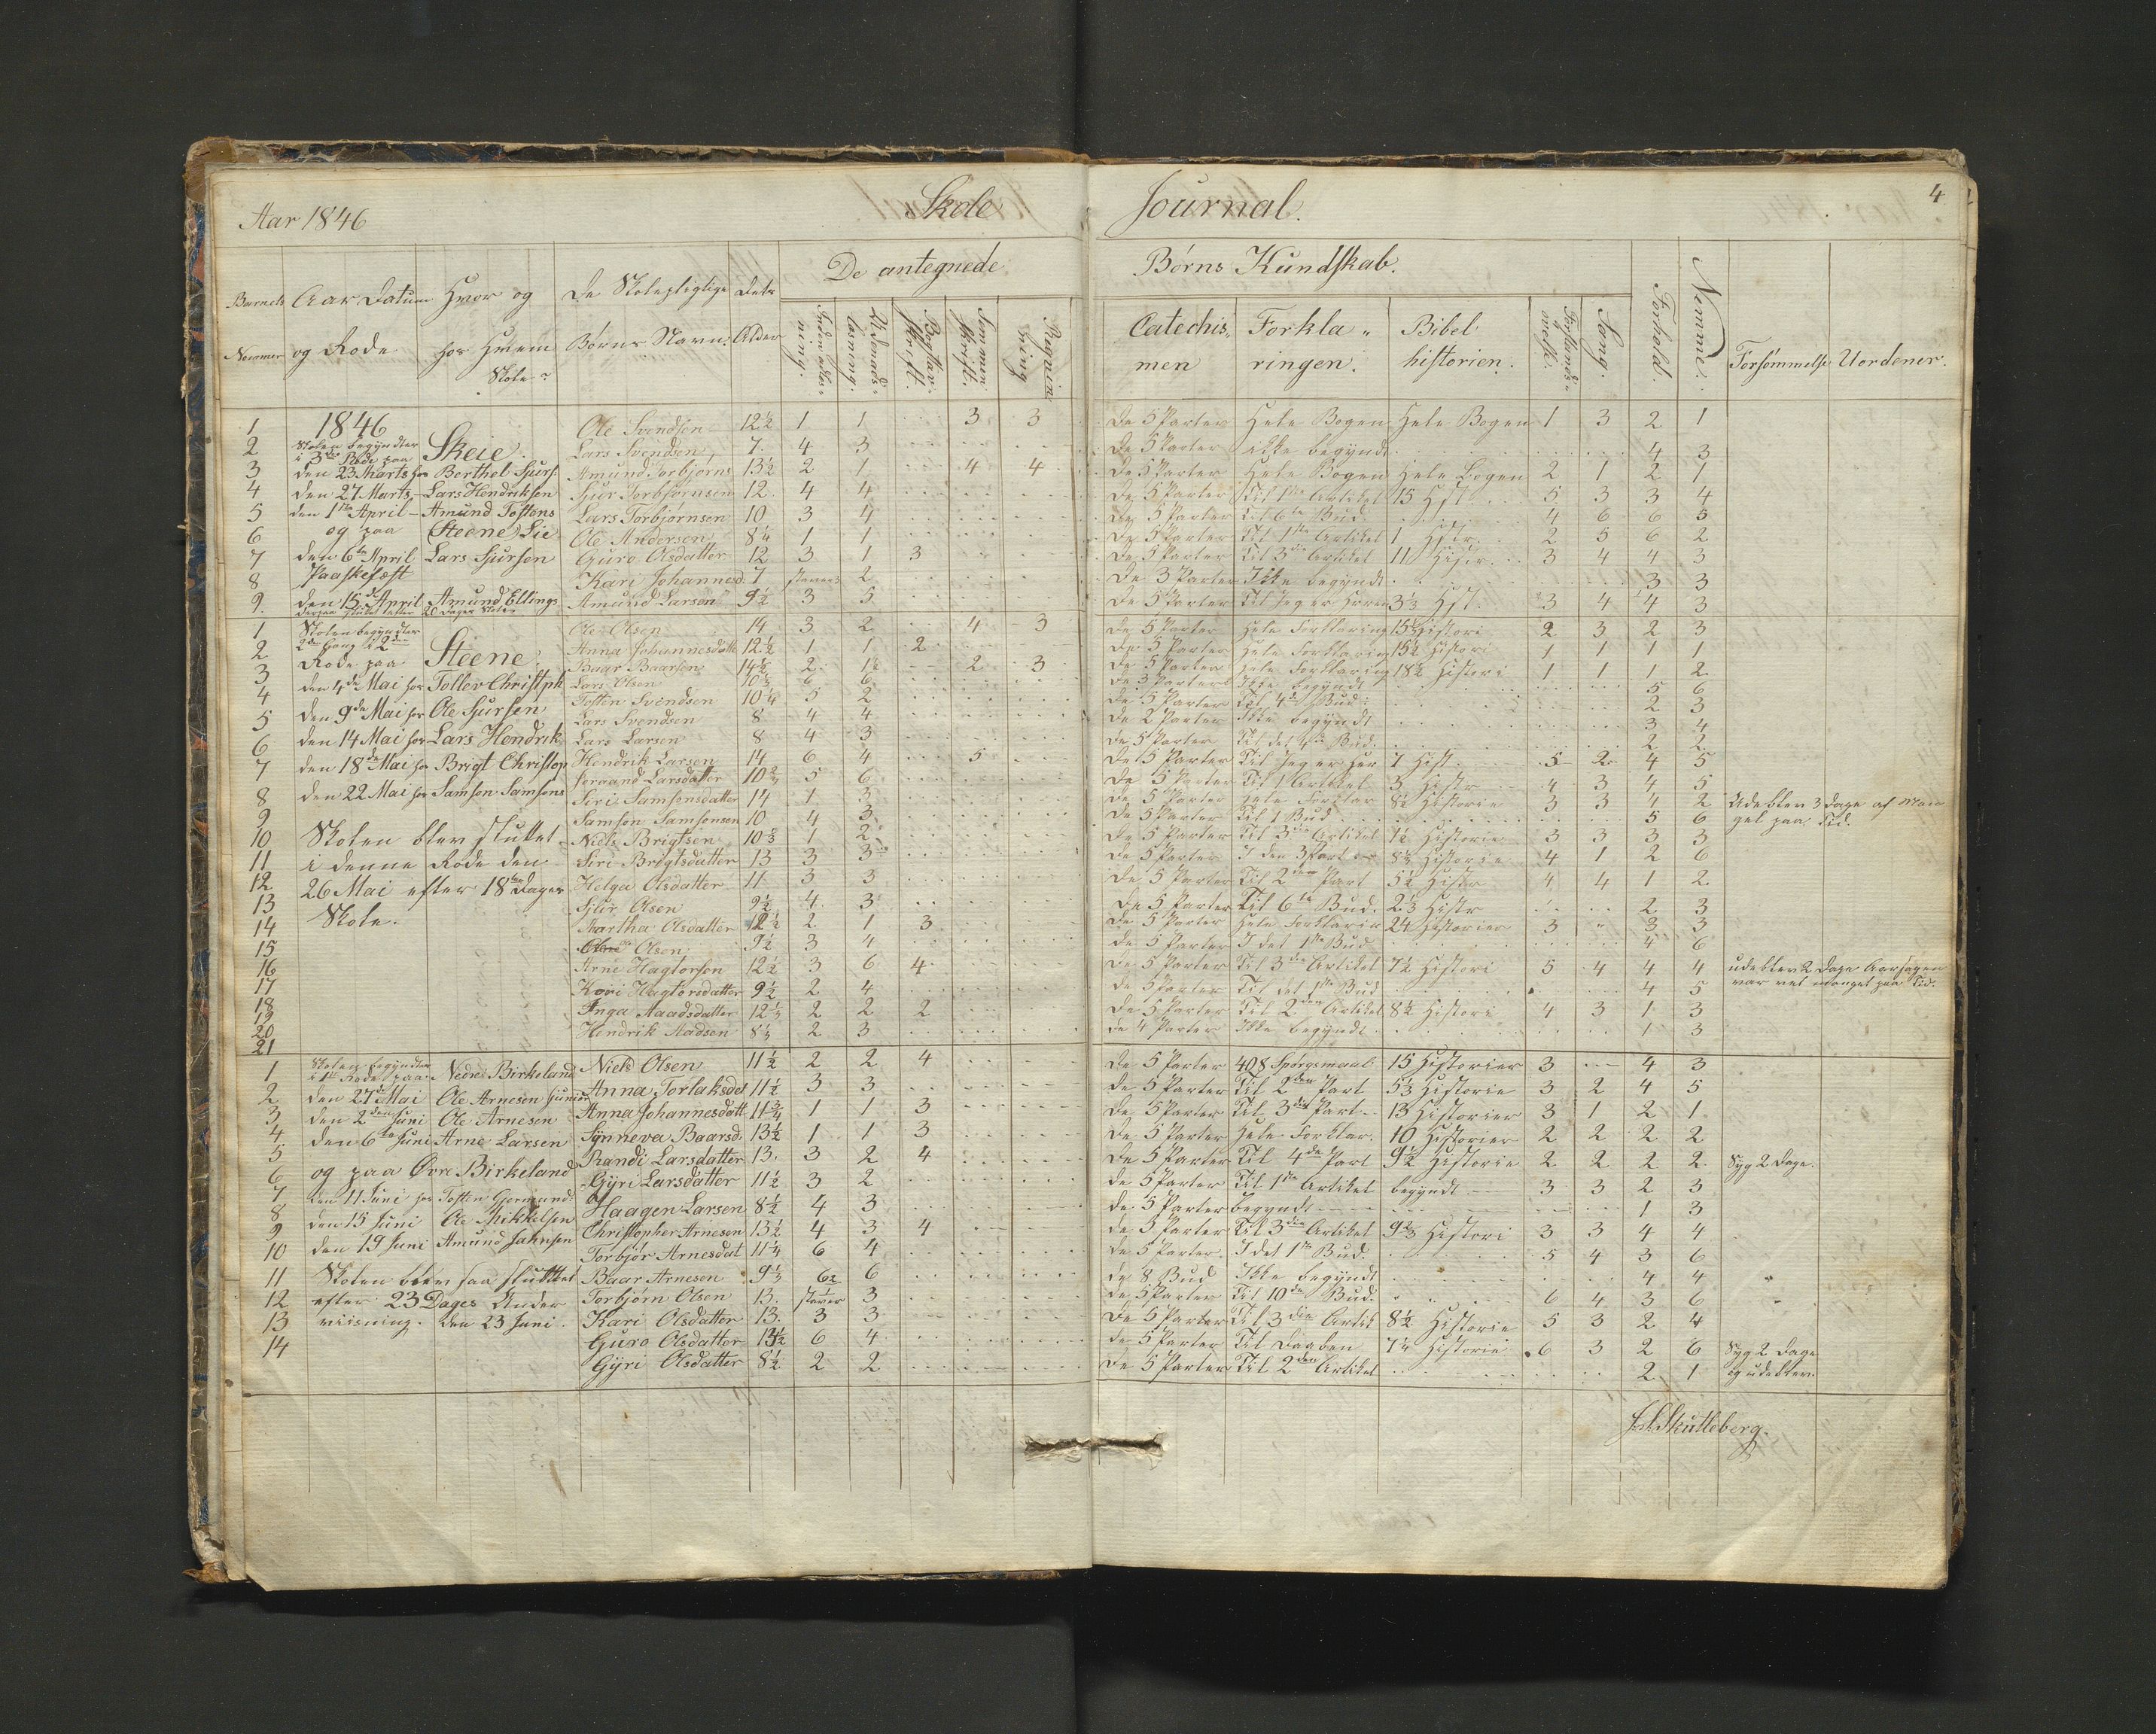 Aar 1846
Skole
Journal.
4
De antegnede
Børns Kundskab.
Barnets Nummer
Aar Datum og Rode
Hvor og hos Hvem Skole
De Skolepligtige Børns Navn.
Dets Alder
Indenadlæsning.
Udenadslæsning.
Bogstavskrift.
Sammenskrift.
Regning
Catechismen
Forklaringen.
Bibelhistorien.
Sang.
Forhold.
Nemme.
Forsømmelse
Uordener.
1846
Skolen begyndter
i 3die Rode paa
Skeie.
den 23 Marts hos Berthel Sjurs.
den 27 Marts - Lars Hendriksen
den 1ste April - Amund Tostens
og paa Steene Lie
den 6te April Lars Sjursen
Paaskefæst
den 15de April Amund Ellings
1 Ole Svendsen 12½ 1 1 3 3 De 5 Parter Hele Bogen Hele Bogen 1 3 2 1
2 Lars Svendsen 7. 4 3 De 5 Parter ikke begyndt 4 3
3 Amund Torbjørns 13½ 2 1 4 4 De 5 Parter Hele Bogen Hele Bogen 2 1 2 1
4 Sjur Torbjørnsen 12 4 4 De 5 Parter Til 1ste Artikel 15 Hist. 5 3 3 4
5 Lars Torbjørnsen 10 3 4 De 5 Parter Til 6te Bud. 4 6 6 5
6 Ole Andersen 8¼ 1 1 De 5 Parter Til 1ste Artikel 1 Histr. 2 5 6 2
7 Guro Olsdatter 12 3 1 3 De 5 Parter Til 3die Artikel 11 Histr. 3 4 4 3
8 Kari Johannesd. 7 staver 2 De 3 Parter Ikke begyndt 3 3
9. Amund Larsen 9½ 3 5 De 5 Parter Til Jeg er Herren 3⅓ Hist. 3 4 4 3
Skolen begyndter
2den Gang i 2den
Rode paa Steene.
den 4de Mai hos Tollev Christph
den 9de Mai hos Ole Sjursen
den 14 Mai hos Lars Hendrik
den 18de Mai hos Brigt Christop
den 22 Mai hos Samson Samsons
Skolen blev sluttet
i denne Rode den
26 Mai efter 18ten Dages
Skole.
1 Ole Olsen 14 3 2 4 3 De 5 Parter Hele Forklaring 15½ Histori 2 3 2 3
2 Anna Johannesdatt 12½ 1 1 2 De 5 Parter Hele Forklaring 15½ Histori 1 1 1 1
3 Baar Baarsen 14½ 2 1½ 2 3 De 5 Parter Hele Forklaring 18½ Histori 1 1 1 2
4 Lars Olsen 10⅓ 6 6 De 3 Parter Ikke begyndt 5 6
5 Tosten Svendsen 10¼ 5 2 De 5 Parter Til 4de Bud 2 3
6 Lars Svendsen 8 4 4 De 2 Parter Ikke begyndt 3 4
7 Lars Larsen 8 4 3 De 5 Parter Til det 4de Bud. 2 2
8 Hendrik Larsen 14 6 4 5 De 5 Parter Til Jeg er Her 7 Hist. 5 2 4 5
9 Jorgand Larsdatter 5 6 De 5 Parter Til 1 Artikel 3 Histr 4 3 4 5
10 Siri Samsonsdatter 14 1 3 De 5 Parter Hele Forklar 8½ Historie 3 3 4 2 Udeblev 3 Dage af Mangel paa Tid.
11 Samson Samsonsen 10 4 3 De 5 Parter Til 1 Bud 5 6
12 Niels Brigtsen 1 2 De 5 Parter Til 3die Artikel 1½ Historie 3 3 3 3
13 Siri Brigtsdatter 13 3 3 De 5 Parter I den 3 Part 8½ Historie 4 1 2 6
14 Helga Olsdatter 11 3 3 De 5 Parter Til 2den Part 5½ Histr 4 4 1 2
15 Sjur Olsen 9½ 4 3 De 5 Parter Til 6te Bud. 2⅓ Histr 2 3
16 Martha Olsdatter 12½ 2 1 3 De 5 Parter Hele Forklarin 24 Historier 3 " 3 3
17 Olsen 9½ 3 4 De 5 Parter I det 1ste Bud 4 6
18 Arne Hagtorsen 12½ 3 6 4 De 5 Parter Til 3die Artikel 7½ Histori 5 4 4 4 udeblev 2 Dage Aarsagen var vel mangel paa Tid.
19 Kari Hagtorsdatter 9½ 2 4 De 5 Parter Til det 1ste Bud 4 5
20 Inga Aaadsdatter 12½ 2 2 2 De 5 Parter Til 2den Artikel 8½ Histori 4 3 1 3
21 Hendrik Aadsen 8½ 2 3 De 4 Parter Ikke begyndt 1 3
Skolen begyndter
i 1ste Rode paa Nedre Birkeland
den 27de Mai Ole Arnesen Junior
den 2den Juni Ole Arnesen
den 6te Juni Arne Larsen
og paa Øvre Birkeland
den 11 Juni hos Tosten Gjermund.
den 15 Juni Ole Mikkelsen
den 19 Juni Amund Jahnsen
Skolen blev saa sluttet
efter 23 Dages Under
viisning. den 23 Juni.
1 Niels Olsen 11½ 2 2 4 De 5 Parter 408 Spørgsmaal 15 Historier 3 4 3
2 Anna Torlaksdat 11½ 3 3 De 5 Parter Til 2den Part 5⅓ Historie 3 2 4 5
3 Anna Johannesdatt 11¾ 1 1 3 De 5 Parter Til 3die Part 13 Historier 3 1 2 1
4 Synneva Baarsd. 13½ 1 1 3 De 5 Parter Hele Forklar. 10 Historier 2 2 2 2
5 Randi Larsdatter 13. 3 2 4 De 5 Parter Til 4de Part 9½ Historie 2 2 2 2 Syg 2 Dage.
6 Gyri Larsdatter 11½ 3 2 De 5 Parter Til 1ste Artikel begyndt 3 3 2 3
7 Haagen Larsen 8½ 4 3 De 5 Parter begyndt 1 3
8 Christopher Arnesen 13½ 4 3 4 De 5 Parter Til 3die Artikel 9⅔ Histori 3 3 4 4
9 Torbjør Arnesdat 11¼ 6 4 De 5 Parter. I det 1ste Bud. 5 4 3 6
10 Baar Arnesen 9⅓ 6 De 8 Bud Ikke begyndt 4 4
11 Torbjørn Olsen 13. staver 3 De 5 Parter Til 10de Bud. 6 4 3 6
12 Kari Olsdatter 13. 3 3 De 5 Parter Til 3die Artik 8½ Historie 5 3 2 4
13 Guro Olsdatter 13½ 6 4 De 5 Parter Til Daaben 7¼ Historie 6 3 2 6 Syg 2 Dage og udeblev.
14 Gyri Olsdatter 8½ 2 2 De 5 Parter Til 2den Artikel 2 1
Skutleberg.